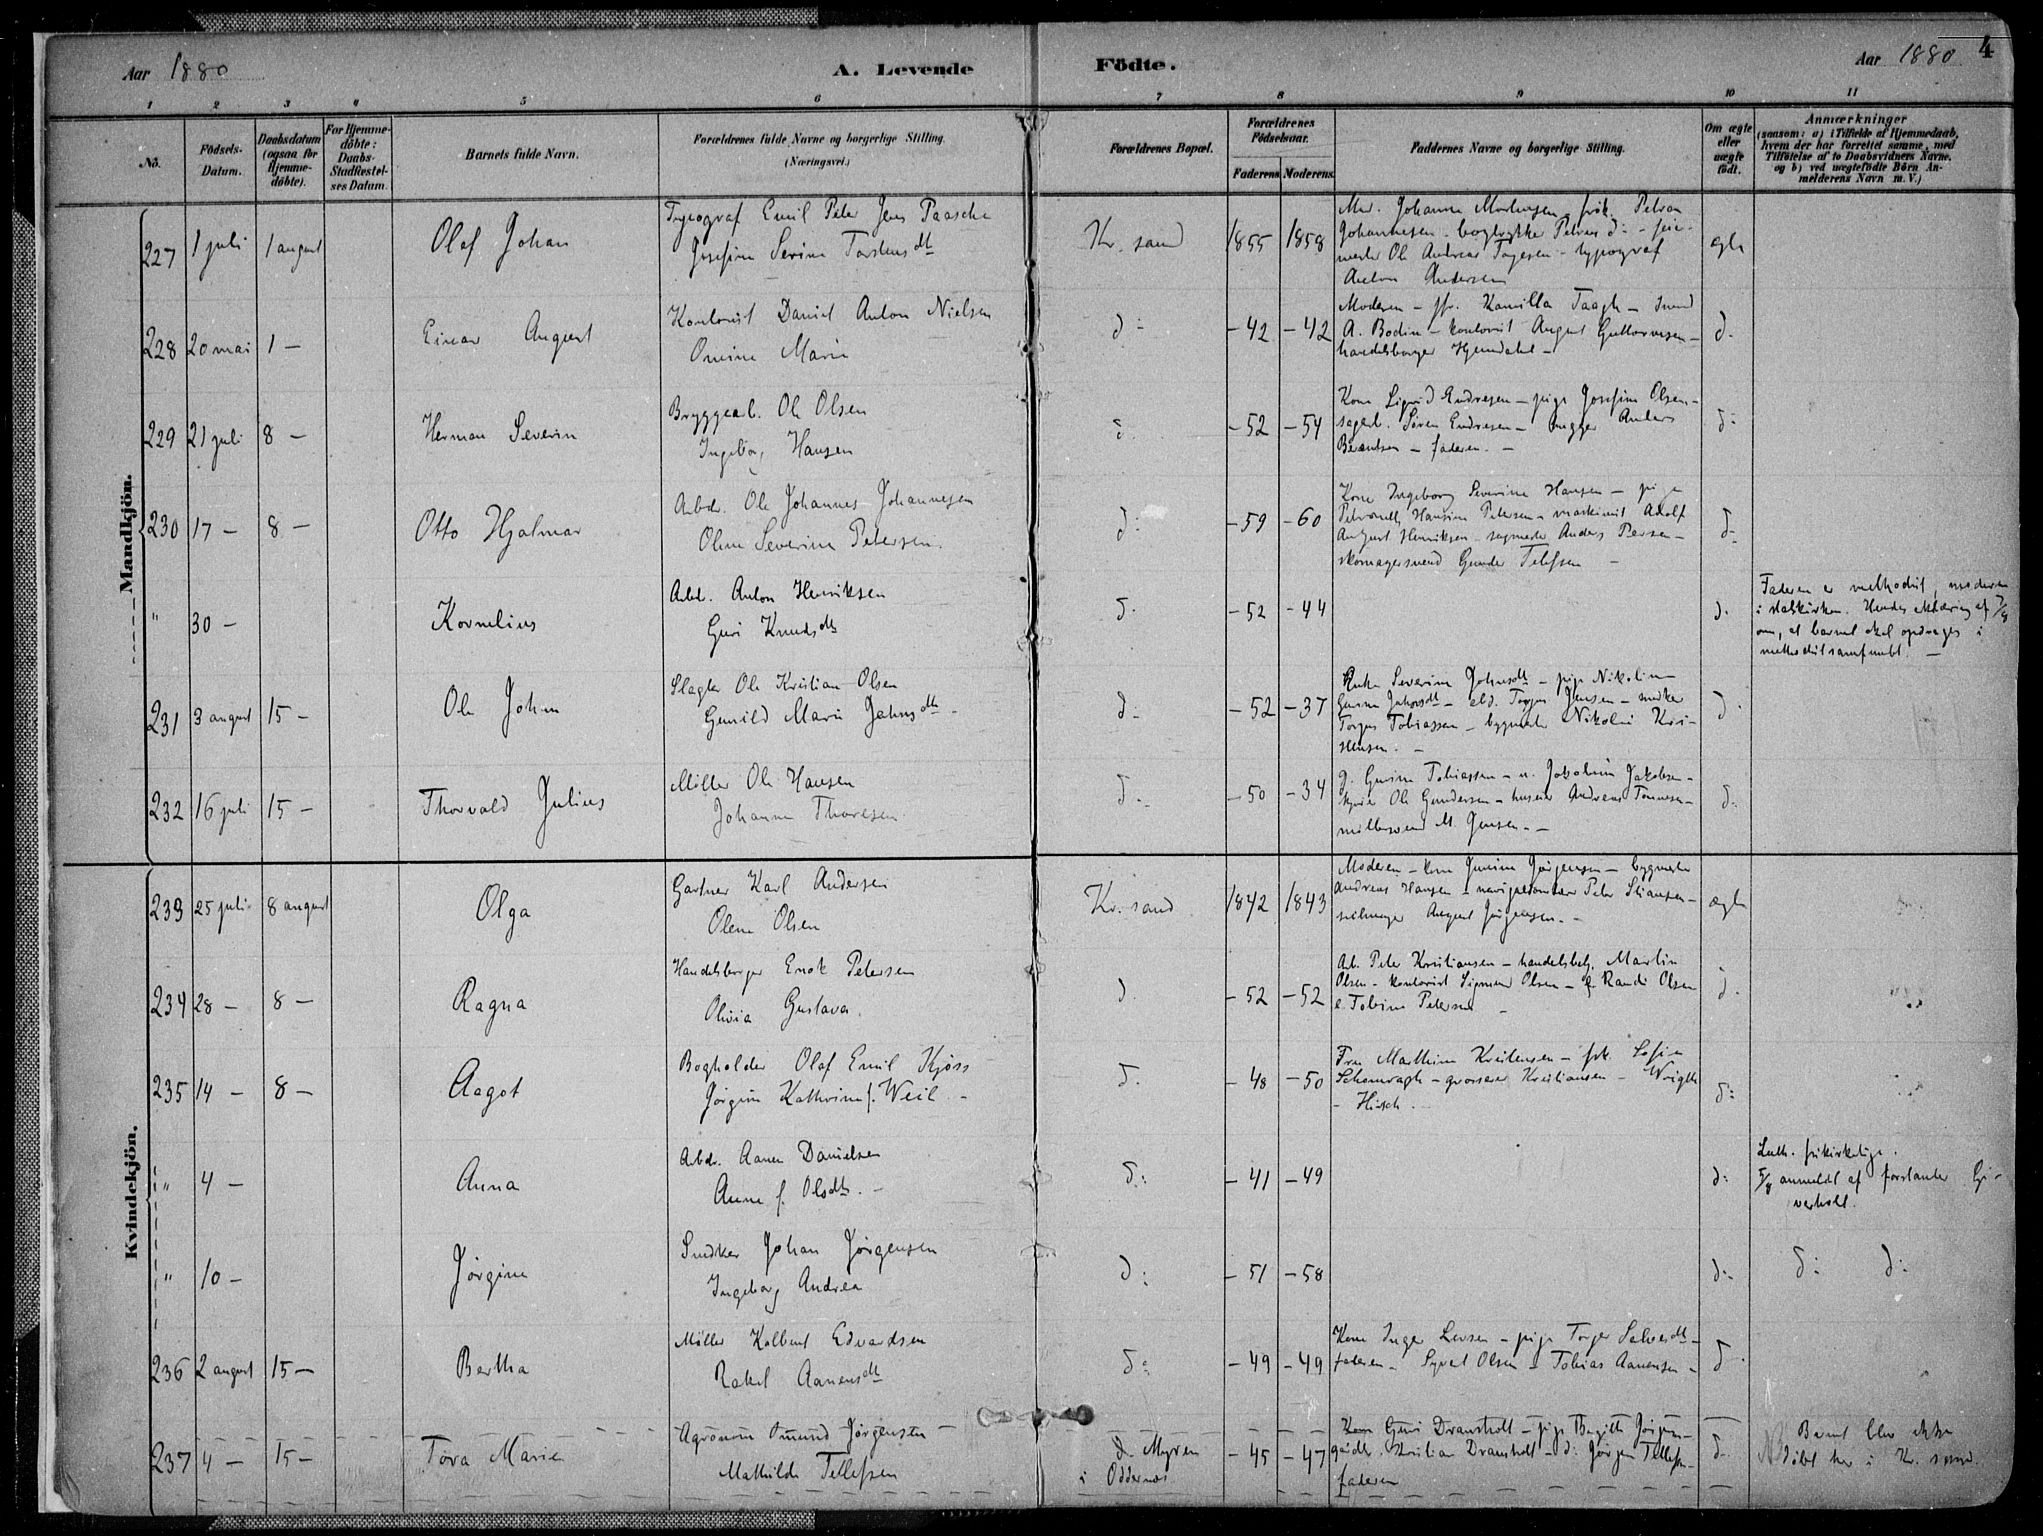 Aar 1880
A. Levende Födte.
Aar 1880 4
1 2 3 4 5 6 7 8 9 10 11
Nö.
Födsels-Datum.
Daabsdatum (ogsaa for Hjemme-döbte).
For Hjemme-döbte: Daabs-Stadfæstel-ses Datum.
Barnets fulde Navn.
Forældrenes fulde Navne og borgerlige Stilling. (Næringsvei.)
Forældrenes Bopæl.
Forældrenes Födselsaar.
Faderens Moderens
Faddernes Navne og borgerlige Stilling.
Om ægte eller uægte födt.
Anmærkninger
(saasom: a) i Tilfælde af Hjemmedaab,
hvem der har forrettet samme, med
Tilföielse af to Daabsvidners Navne,
og b) ved uægtefödte Börn An-
melderens Navn m. V.)
Mandkjön.
227 1 juli 1 august Olaf Johan
Typograf Emil Peter Jens Paasche
Josefine Serine Torstensdtr
Kr. sand 1855 1858
Mad. Johanne Mortensen - frøk. Petra
Johannesen - bogtrykker Petrus d: -
Ole Andreas - typograf
Anton Andersen
ægte
228 20 mai 1 - Einar August
Kontorist Daniel Anton Nielsen
Omine Marie
d: - 42 - 42
Moderen - jfr. Kamilla Taagh -
A. Bodin - kontorist August Guttormsen -
handelsborger
d.
229 21 juli 8 - Herman Severin
Bryggearb. Ole Olsen
Ingeborg Hansen
d. - 52 - 54
Kone Sigrid Endresen - pige Josefine Olsen -
sagarb. Søren Endresen - Anders
Berentsen - faderen. -
d:
230 17 - 8 - Otto Hjalmar
Arbdr. Ole Johannes Johannesen
Olene Severine Petersen.
d: - 59 - 60
Kone Ingeborg Severine Hansen - pige
Hansine Petersen - maskinist Adolf
August Henriksen - sagmester Anders Persen -
skomagersvend Gunder Tellefsen -
d.
" 30 - Kornelius
Arbdr. Anton Henriksen
Guri Knudsdtr
d. - 52 - 44
d.
Faderen er methodist, moderen
i statskirken. Hendes erklæring af 7/8
om, at barnet skal opdrages i
methodistsamfundet. -
231 3 august 15 - Ole Johan
Slagter Ole Kristian Olsen
Gunild Marie Jahnsdtr -
d. - 52 - 37
Enke Severine Johnsdtr - pige Nikoline
Jensen - snedker
Torjus Tobiassen - bygmester Nikolai Kri-
stensen. -
d.
232 16 juli 15 - Thorvald Julius
Möller Ole Hansen
Johanne Thoresen
d. - 50 - 34
g. Gurine Tobiassen - Jakobsen -
Ole Gundersen - Andreas Tønnesen -
möllersvend M. Jensen. -
d.
Kvindekjön.
233 25 juli 8 august Olga
Gartner Karl Andersen
Olene Olsen
Kr. sand 1842 1843
Moderen - kone Jørgensen - bygmester
Andreas Hansen - Peter Stiansen -
August Jørgensen. -
ægte
234 28 - 8 - Ragna
Handelsborger Enok Petersen
Olivia Gustava.
d. - 52 - 52
Arb. Peter Kristiansen - handelsbetj. Martin
Olsen - kontorist Sigmund Olsen - Randi Olsen
e. Tobine Petersen -
d.
235 14 - 8 - Aagot
Bogholder Olaf Emil Kjøss
Jørgine Kathrine f. Weil -
d. - 48 - 50
Fru Marthine Kristensen - frk. Sofie
- grosserer Kristiansen - Wrigth
- Hirsch.
d:
" 4 - Anna
Arbdr. Aanen Danielsen
Anne f. Olsdtr. -
d: - 41 - 49
d:
Luth. frikirkelige.
5/8 anmeldt af forstander Gje-
verholt.
" 10 - Jørgine
Snedker Johan Jørgensen
Ingeborg Andrea
d: - 51 - 58
d:
d: d:
236 2 august 15 - Bertha
Møller Kolbent Edvardsen
Rakel Aanensdtr
d: - 49 - 49
Kone Inger Larsen - pige Torjer Salvesdtr -
faderen - Syvert Olsen - Tobias Aanensen -
d.
237 4 - 15 - Tora Marie
Agronom Omund Jørgensen -
Mathilde Tellefsen
d. Myren i Oddernes - 45 - 47
Kone Guri Dranstedt - pige Birgitte Jørgen-
Kristian Dranstedt - d: Jørgen Tellefsen
faderen
d.
Barnet blev ikke
døbt her i Kr. sand.